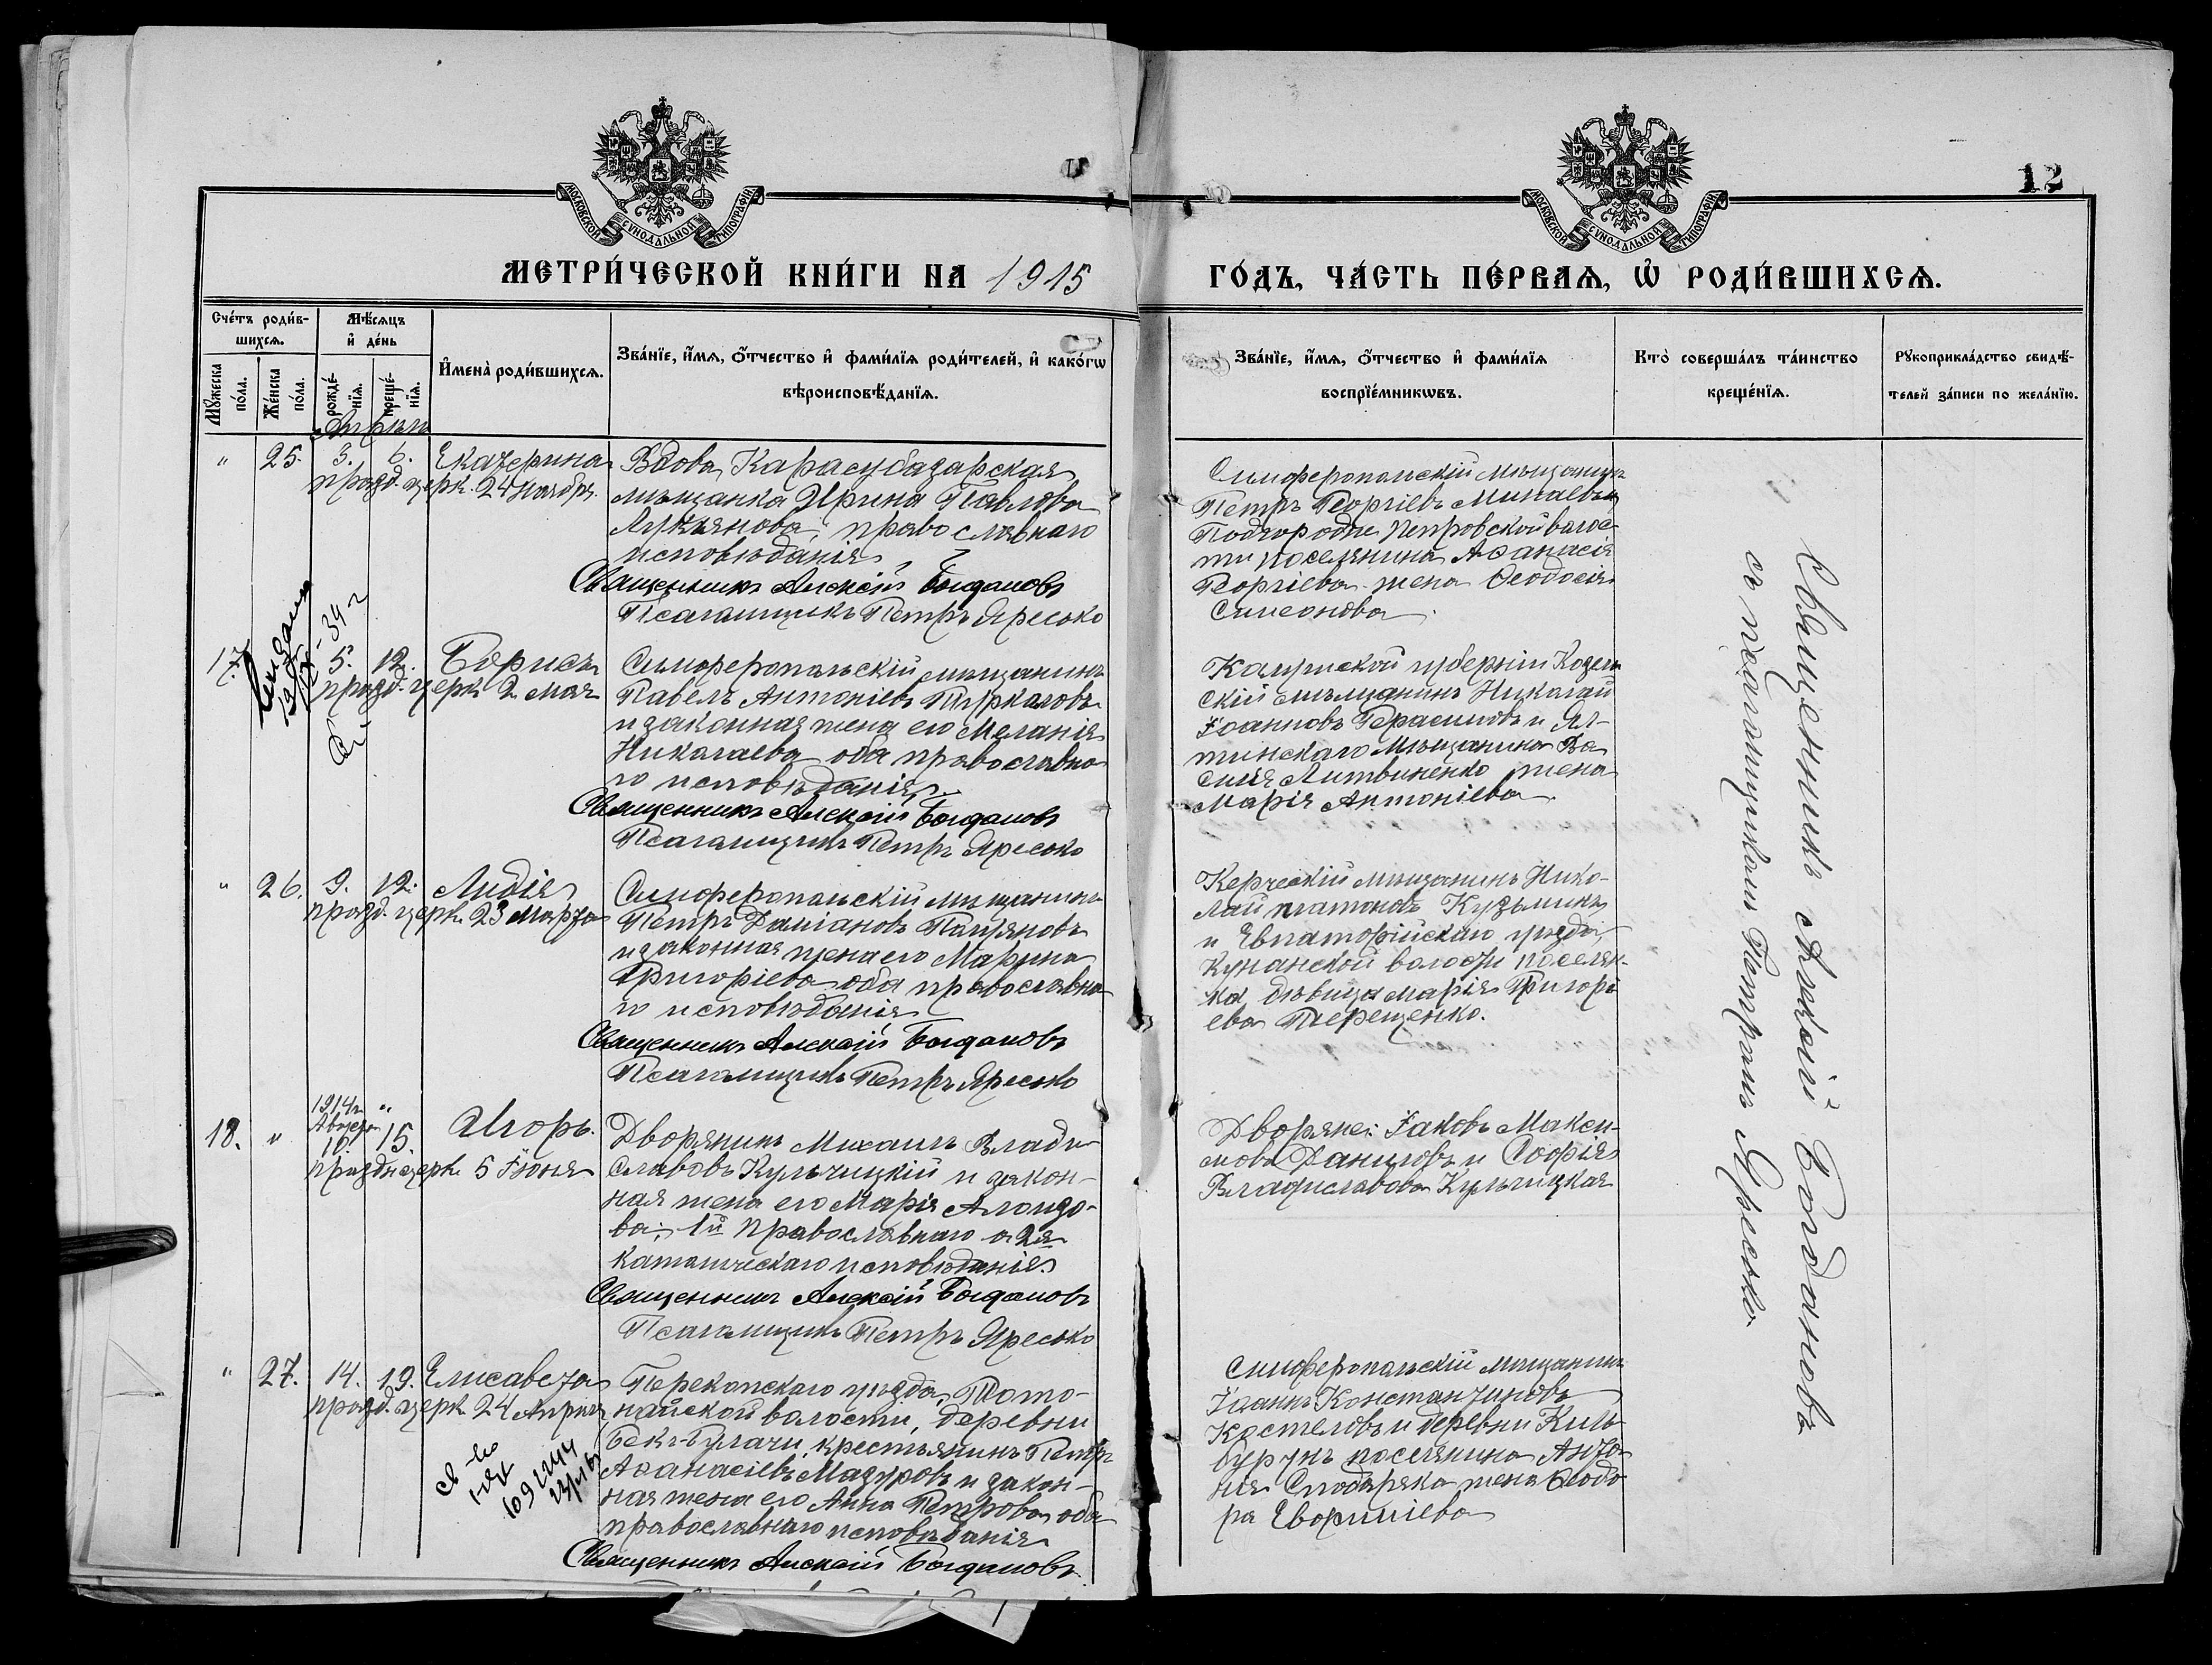 12
МОСКОВСКОЙ СѴНОДАЛЬНОЙ ТИПОГРАФІИ
МОСКОВСКОЙ СѴНОДАЛЬНОЙ ТИПОГРАФІИ
МЕТРИ́ЧЕСКОЙ КНИ́ГИ НА 1915
ГО́ДЪ, ЧА́СТЬ ПЕ́РВАѦ, Ѡ҆ РОДИ́ВШИХСѦ.
Сче́тъ роди́в-
шихсѧ.
Мѣ́сѧцъ
и҆ де́нь
Мꙋ́жеска
по́ла.
Же́нска
по́ла.
рожде́-
нїѧ.
креще́-
нїѧ.
И҆мена̀ роди́вшихсѧ.
Зва́нїе, и҆́мѧ, ѻ҆́тчество и҆ фами́лїѧ роди́телей, и҆ како́гѡ
вѣроисповѣ́данїѧ.
Зва́нїе, и҆́мѧ, ѻ҆́тчество и҆ фами́лїѧ
воспрїе́мникѡвъ.
Кто̀ соверша́лъ та́инство
креще́нїѧ.
Рꙋкоприкла́дство свидѣ́-
телей за́писи по жела́нїю.
" 25. 3. 6. Екатерина
празд. церк. 24 Ноября.
Вдова, Карасубазарская
мѣщанка Ирина Павлова
Лукьянова, православнаго
исповѣданія
Священникъ Алексій Богдановъ
Псаломщикъ Петръ Яресько
Симферопольскій мѣщанинъ
Петръ Георгіевъ
Подгородне Петровской волос-
ти поселянина Аѳанасія
Георгіева жена Ѳеодосія
Симеонова
17. 5. 12. Борисъ
празд. церк. 2 Мая
Симферопольскій мѣщанинъ
Павелъ Антоніевъ
и законная жена его Меланія
Николаева оба православна-
го исповѣданія
Священникъ Алексій Богдановъ
Псаломщикъ Петръ Яресько
Калужской губерніи Козель-
скій мѣщанинъ Николай
Іоанновъ Герасимовъ и Ял-
тинскаго мѣщанина Ва-
силія Литвиненко жена
Марія Антоніева
" 26. 9. 12. Лидія
празд. церк. 23 Марта
Симферопольскій мѣщанинъ
Петръ Даміановъ
и законная жена его Марина
Григоріева оба православна-
го исповѣданія
Священникъ Алексій Богдановъ
Псаломщикъ Петръ Яресько
Керческій мѣщанинъ Нико-
лай Платоновъ Кузьминъ
и Евпаторійскаго уѣзда,
волости поселян-
ка, дѣвица Марія Григорі-
ева Терещенко.
1914 г. "
Августа
18. " 10. 15. Игорь.
праздн. церк. 5 Іюня
Дворянинъ Михаилъ Влади-
славовъ Кульчицкій и закон-
ная жена его Марія
1й православнаго а 2я
католическаго исповѣданія
Священникъ Алексій Богдановъ
Псаломщикъ Петръ Яресько
Дворяне: Іаковъ Макси-
мовъ Даниловъ и Софія
Владиславова Кульчицкая
" 27. 14. 19. Елисавета
празд. церк. 24 Апрѣля
Перекопскаго уѣзда,
волости, деревни
крестьянинъ Петръ
Аѳанасіевъ Мазуровъ и закон-
ная жена его Анна Петрова оба
православнаго исповѣданія
Священникъ Алексій Богдановъ
Симферопольскій мѣщанинъ
Іоаннъ Константиновъ
Костеловъ и деревни Киль-
бурунъ поселянина Анто-
нія жена Ѳеодо-
ра
Священникъ Алексій Богдановъ
съ псаломщикомъ Петромъ Яресько.